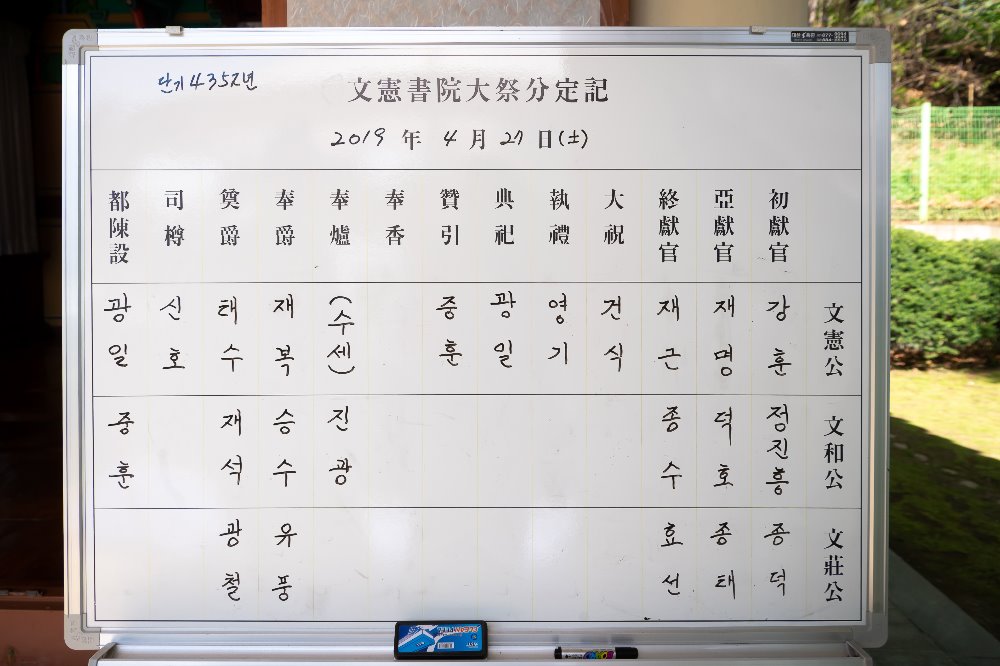 단기 4352년
文憲書院大祭分定記
2019 年 4 月 27 日(土)
初獻官
亞獻官
終獻官
大祝
執禮
典祀
贊引
奉香
奉爐
奉爵
奠爵
司樽
都陳設
文憲公
강훈
재명
재근
건식
영기
광일
중훈
(수센)
재복
태수
신호
광일
文和公
정진흥
덕호
종수
진광
승수
재석
중훈
文莊公
종덕
종태
효선
유풍
광철